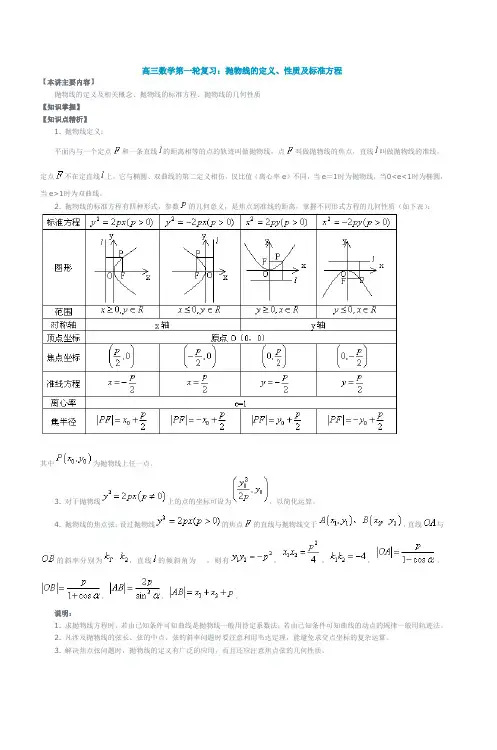 高三数学第一轮复习：抛物线的定义、性质及标准方程
【本讲主要内容】
抛物线的定义及相关概念、抛物线的标准方程、抛物线的几何性质
【知识掌握】
【知识点精析】
1. 抛物线定义：
平面内与一个定点F和一条直线l的距离相等的点的轨迹叫做抛物线，点F叫做抛物线的焦点，直线l叫做抛物线的准线，
定点F不在定直线l上。它与椭圆、双曲线的第二定义相仿，仅比值（离心率e）不同，当e＝1时为抛物线，当0<e<1时为椭圆，
当e>1时为双曲线。
2. 抛物线的标准方程有四种形式，参数p的几何意义，是焦点到准线的距离，掌握不同形式方程的几何性质（如下表）：
标准方程 y²=2px(p>0) y²=-2px(p>0) x²=2py(p>0) x²=-2py(p>0)
图形 y l P O F x y l P F O x y P F O l x y l O F P x
范围 x≥0,y∈R x≤0,y∈R y≥0,x∈R y≤0,x∈R
对称轴 x轴 y轴
顶点坐标 原点O（0，0）
焦点坐标 (p/2,0) (-p/2,0) (0,p/2) (0,-p/2)
准线方程 x=-p/2 x=p/2 y=-p/2 y=p/2
离心率 e=1
焦半径 |PF|=x₀+p/2 |PF|=-x₀+p/2 |PF|=y₀+p/2 |PF|=-y₀+p/2
其中P(x₀,y₀)为抛物线上任一点。
3. 对于抛物线y²=2px(p≠0)上的点的坐标可设为(y₀²/2p,y₀)，以简化运算。
4. 抛物线的焦点弦：设过抛物线y²=2px(p>0)的焦点F的直线与抛物线交于A(x₁,y₁)、B(x₂,y₂)，直线OA与
OB的斜率分别为k₁，k₂，直线l的倾斜角为 ，则有y₁y₂=-p²，x₁x₂=p²/4，k₁k₂=-4，|OA|=p/1+cosα，
|OB|=p/1+cosα，|AB|=2p/sin²α，|AB|=x₁+x₂+p。
说明：
1. 求抛物线方程时，若由已知条件可知曲线是抛物线一般用待定系数法；若由已知条件可知曲线的动点的规律一般用轨迹法。
2. 凡涉及抛物线的弦长、弦的中点、弦的斜率问题时要注意利用韦达定理，能避免求交点坐标的复杂运算。
3. 解决焦点弦问题时，抛物线的定义有广泛的应用，而且还应注意焦点弦的几何性质。